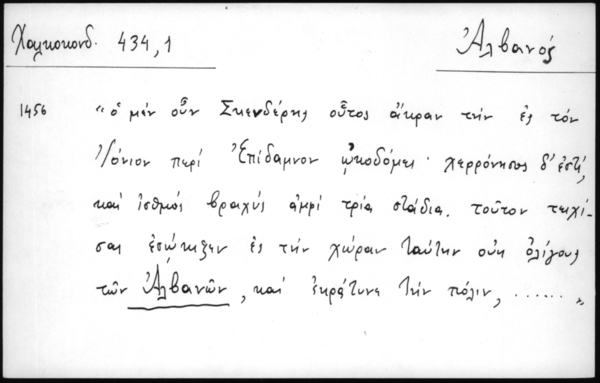 Χαλκοκονδ. 434,1
Ἀλβανός
1456 "ὁ μέν οὖν Σκενδέρης οὗτος ἄκραν τήν ἐς τόν
Ἰόνιον περί Ἐπίδαμνον ᾠκοδόμει· χερρόνησος δ' ἐστί,
καί ἰσθμός βραχύς ἀμφί τρία στάδια. τοῦτον τειχί-
σας ἐσῴκιζεν ἐς τήν χώραν ταύτην οὐκ ὀλίγους
τῶν Ἀλβανῶν, καί ἐκράτυνε τήν πόλιν, ......"